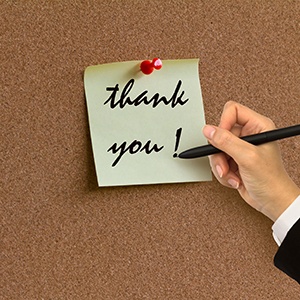 thank
you !